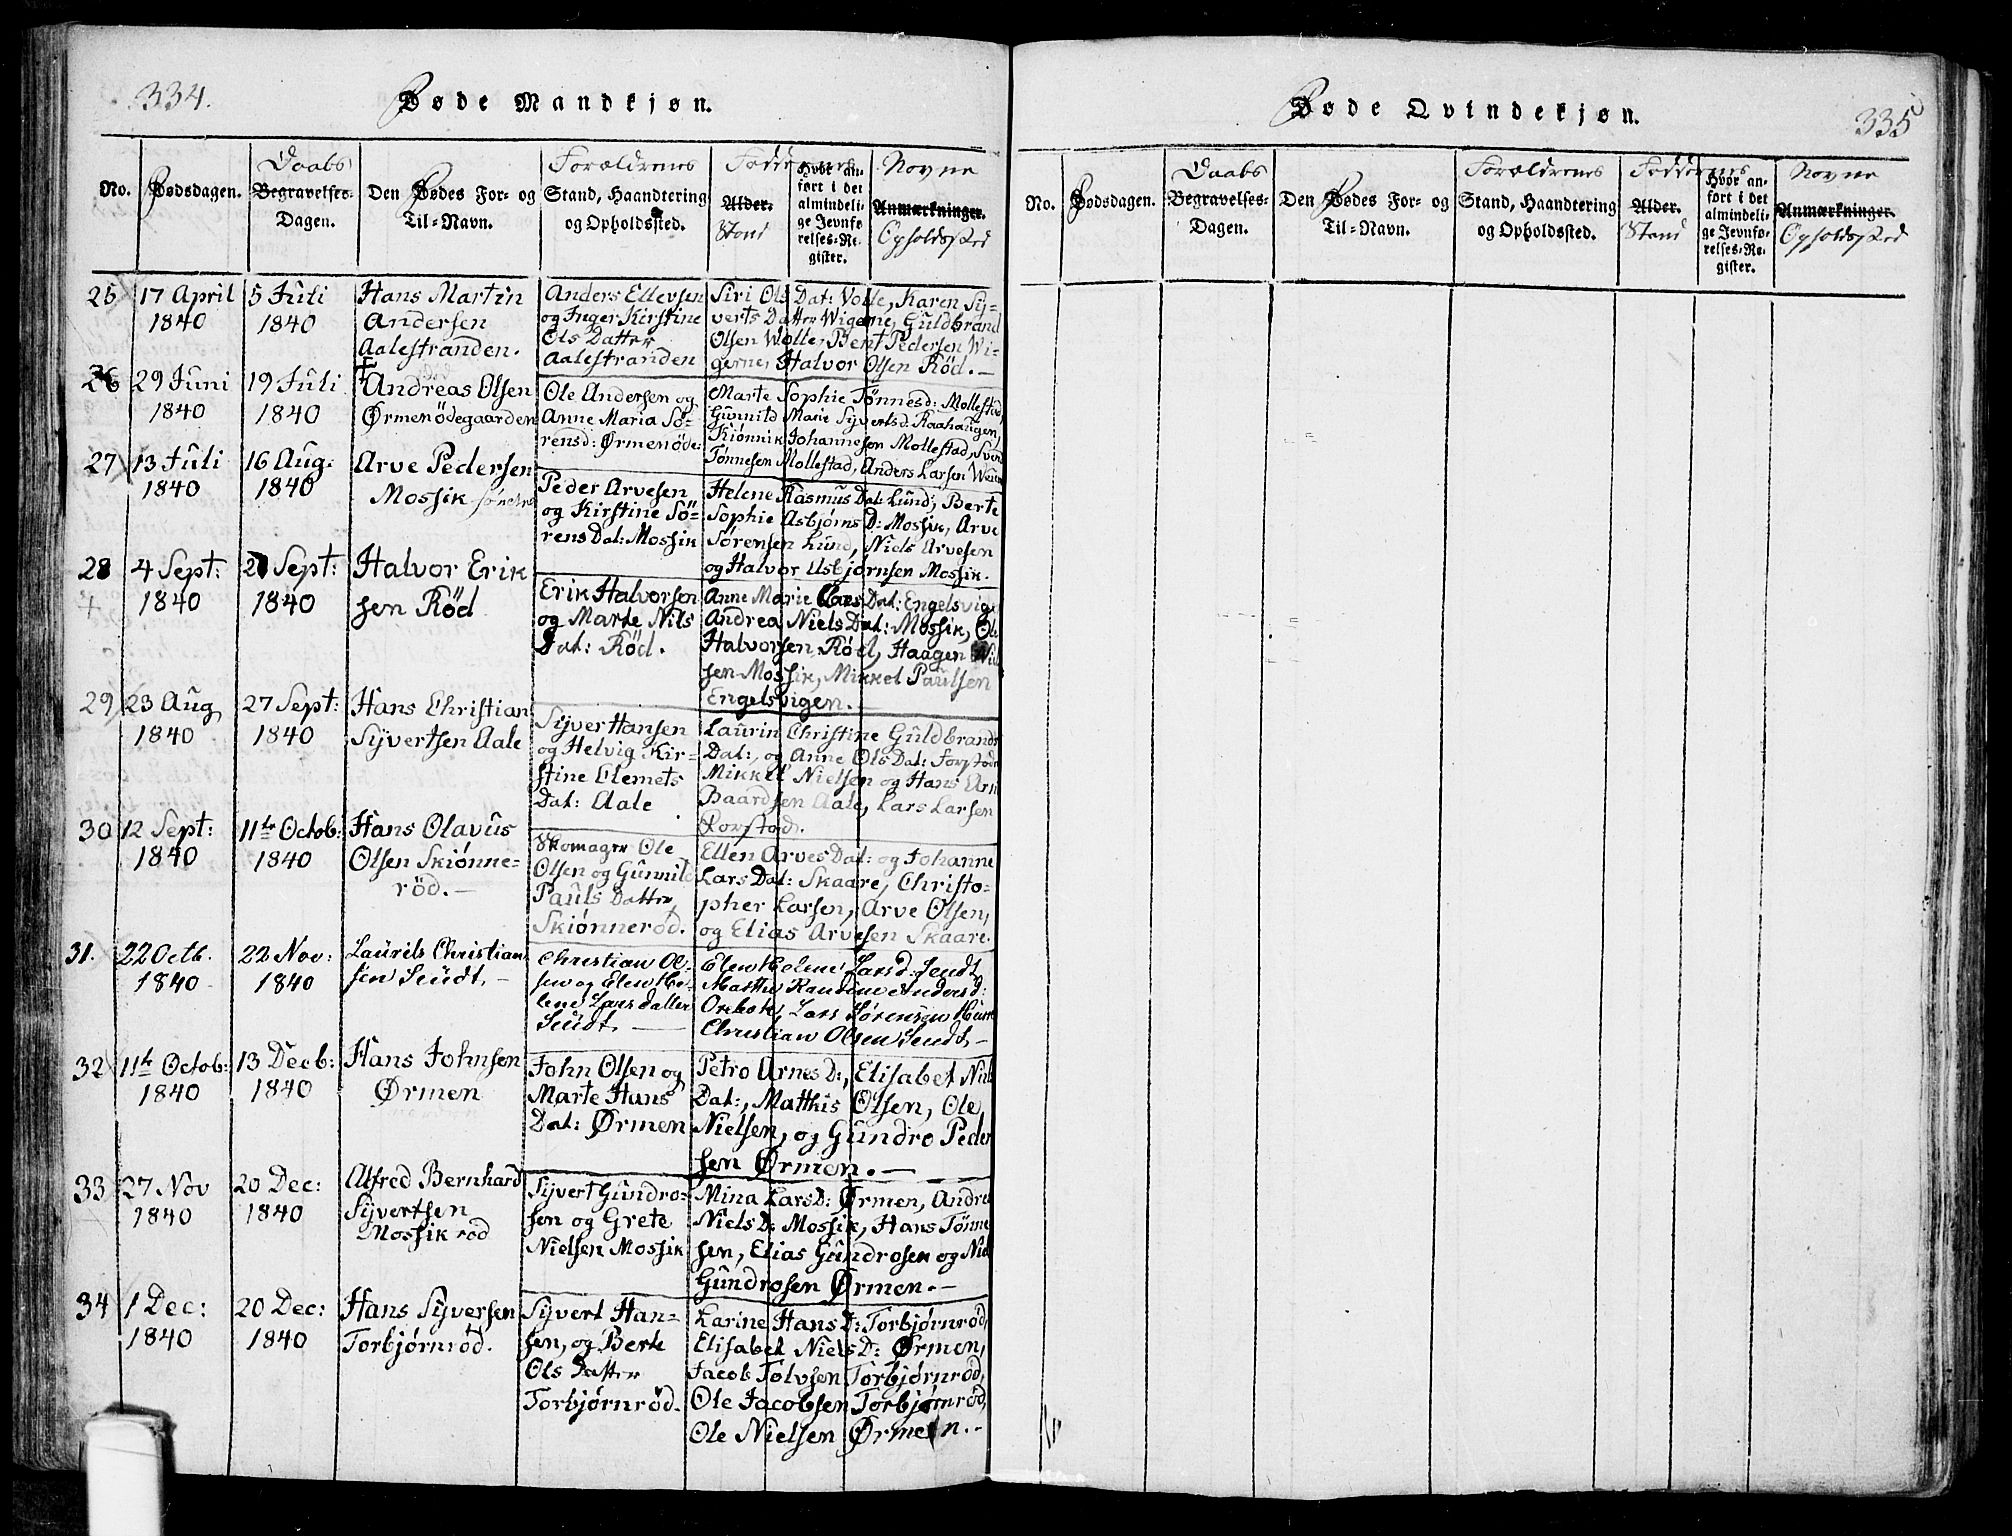 334.
Føde Mandkjøn.
No.
Fødsdagen.
Daabs
Begravelses-
Dagen.
Den Fødes For- og
Til-Navn.
Forældrenes
Stand, Haandtering
og Opholdssted.
Alder.
Stand
Hvor an-
ført i det
almindeli-
ge Jevnfø-
relses-Re-
gister.
Novne
Anmærkninger.
Opholdssted
25
17 April
1840
5 Juli
1840
Hans Martin
Andersen
Aalestranden.
Anders Ellevsen
og Inger Kirstine
Ols Datter
Aalestranden
Siri Ols Dat: Volle, Karen Sy-
verts Datter Wigerne, Guldbrand
Olsen Wolle, Bent Pedersen Wi-
gerne, Halvor Olsen Röd.-
26
29 Juni
1840
19 Juli
1840
Andreas Olsen
Ørmenödegaarden
Ole Andersen og
Anne Maria Sö-
rensd: Ørmenöde:
Marte Sophie Tönnesd: Mollestad,
Gunnild Marie Syvertsd: Raahaugen,
Kiönnik Johannesen Mollestad, Svend
Tönnesen Mollestad, Anders Larsen
27
13 Juli
1840
16 Aug:
1840
Arve Pedersen
Mossik
Peder Arvesen
og Kirstine Sö-
rens Dat: Mossik
Helene Rasmus Dat: Lund, Berte
Sophie Asbjørns D: Mossik, Arve
Sörensen Lund, Niels Arvesen
og Halvor Asbjørnsen Mossik.
28
4 Sept:
1840
Sept:
1840
Halvor Erik
sen Röd
Erik Halvorsen
og Marte Nils
Dat: Röd.
Anne Marie Lars Dat: Engelsvigen
Andrea Niels Dat: Mossik, Ole
Halvorsen Röd, Haagen Niel
sen Mossik, Mikkel Paulsen
Engelsvigen.
29
23 Aug
1840
27 Sept:
1840
Hans Christian
Syvertsen Aale
Syver Hansen
og Helvig Kir-
stine Clemets
Dat: Aale
Laurin Christine Guldbrands
Dat:, og Anne Ols Dat: Forstad
Mikkel Nielsen og Hans Arn
Baardsen Aale, Lars Larsen
Forstad.
30
12 Sept:
1840
11te Octob:
1840
Hans Olavus
Olsen Skiönne-
röd.-
Skomager Ole
Olsen og Gunnild
Pauls Datter,
Skiönneröd.
Ellen Arves Dat: og Johanne
Lars Dat: Skaare, Christo-
pher Larsen, Arve Olsen,
og Elias Arvesen Skaare.
31.
22 Octb.
1840
22 Nov:
1840
Laurits Christian
sen Leudt.-
Christian Ol-
sen og Elen He-
lene Larsdatter
Leudt.
Elen Helene Larsd: Leudt,
Marthe Karine Andersd:
Orebek, Lars Sørensen
Christian Olsen Leudt.-
32
11te Octob:
1840
13 Decb:
1840
Hans Johnsen
Ørmen
John Olsen og
Marte Hans
Dat: Ørmen
Petro Arnes D:, Elisabet Niels
Dat:, Matthis Olsen, Ole
Nielsen, og Gundro Peder
sen Ørmen.-
33
27 Nov
1840
20 Dec:
1840
Alfred Bernhard
Syvertsen
Mossik röd
Syvert Gundro-
sen og Grete
Nielsen Mossik
Mina Lars D: Ørmen, Andre
Niels D: Mossik, Hans Tönne
sen, Elias Gundrosen og Niel
Gundrosen Ørmen.-
34
1 Dec:
1840
20 Dec:
1840
Hans Syversen
Torbjørnröd.
Syvert Han-
sen, og Berte
Ols Datter
Torbjørnröd.
Karine Hans D: Torbjørnröd,
Elisabet Niels D: Ørmen,
Jacob Tolvsen Torbjørnröd,
Ole Jacobsen Torbjørnröd,
Ole Nielsen Ørmen.-
Føde Qvindekjøn.
335
No.
Fødsdagen.
Daabs
Begravelses-
Dagen.
Den Fødes For- og
Til-Navn.
Forældrenes
Stand, Haandtering
og Opholdssted.
Alder.
Stand
Hvor an-
ført i det
almindeli-
ge Jevnfø-
relses-Re-
gister.
Novne
Anmærkninger.
Opholdssted